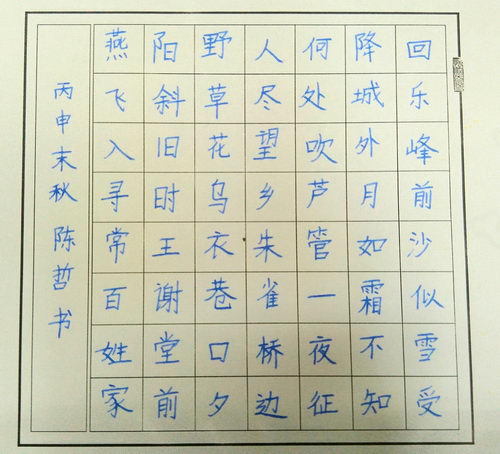 回乐峰前沙似雪受
降城外月如霜不知
何处吹芦管一夜征
人尽望乡朱雀桥边
野草花乌衣巷口夕
阳斜旧时王谢堂前
燕飞入寻常百姓家
丙申末秋 陈哲书